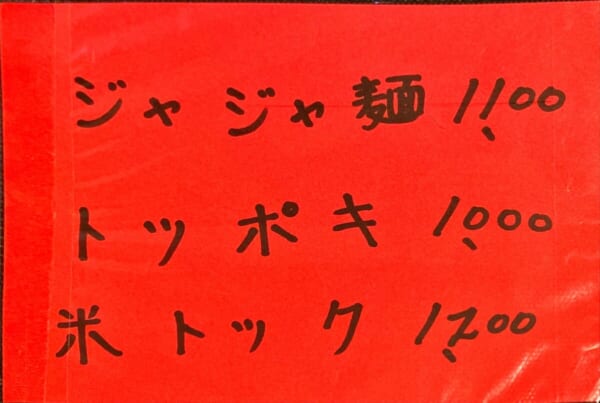 ジャジャ麺 1,100
トッポキ 1,000
米トック 1,200